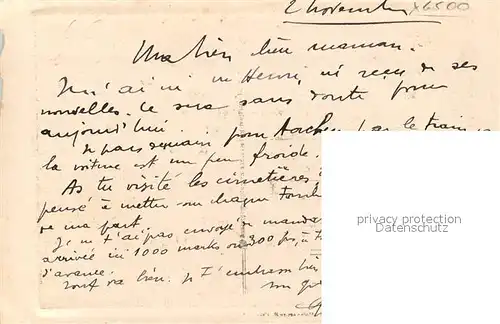 2 Novembre x6500
Ma bien chère maman.
Je n'ai ni vu Henri, ni reçu de ses
nouvelles. Ce sera sans doute pour
aujourd'hui.
Je pars demain pour Aachen par le train
la voiture est un peu froide.
As tu visité les cimetières
pensé à mettre sur chaque tombe
de ma part
Je ne t'ai pas envoyé de manda
arrivée ici 1000 marks ou 300 frs, à
d'avance.
Tout va bien. Je t'embrasse bien
privacy protection
www.oldthing.de